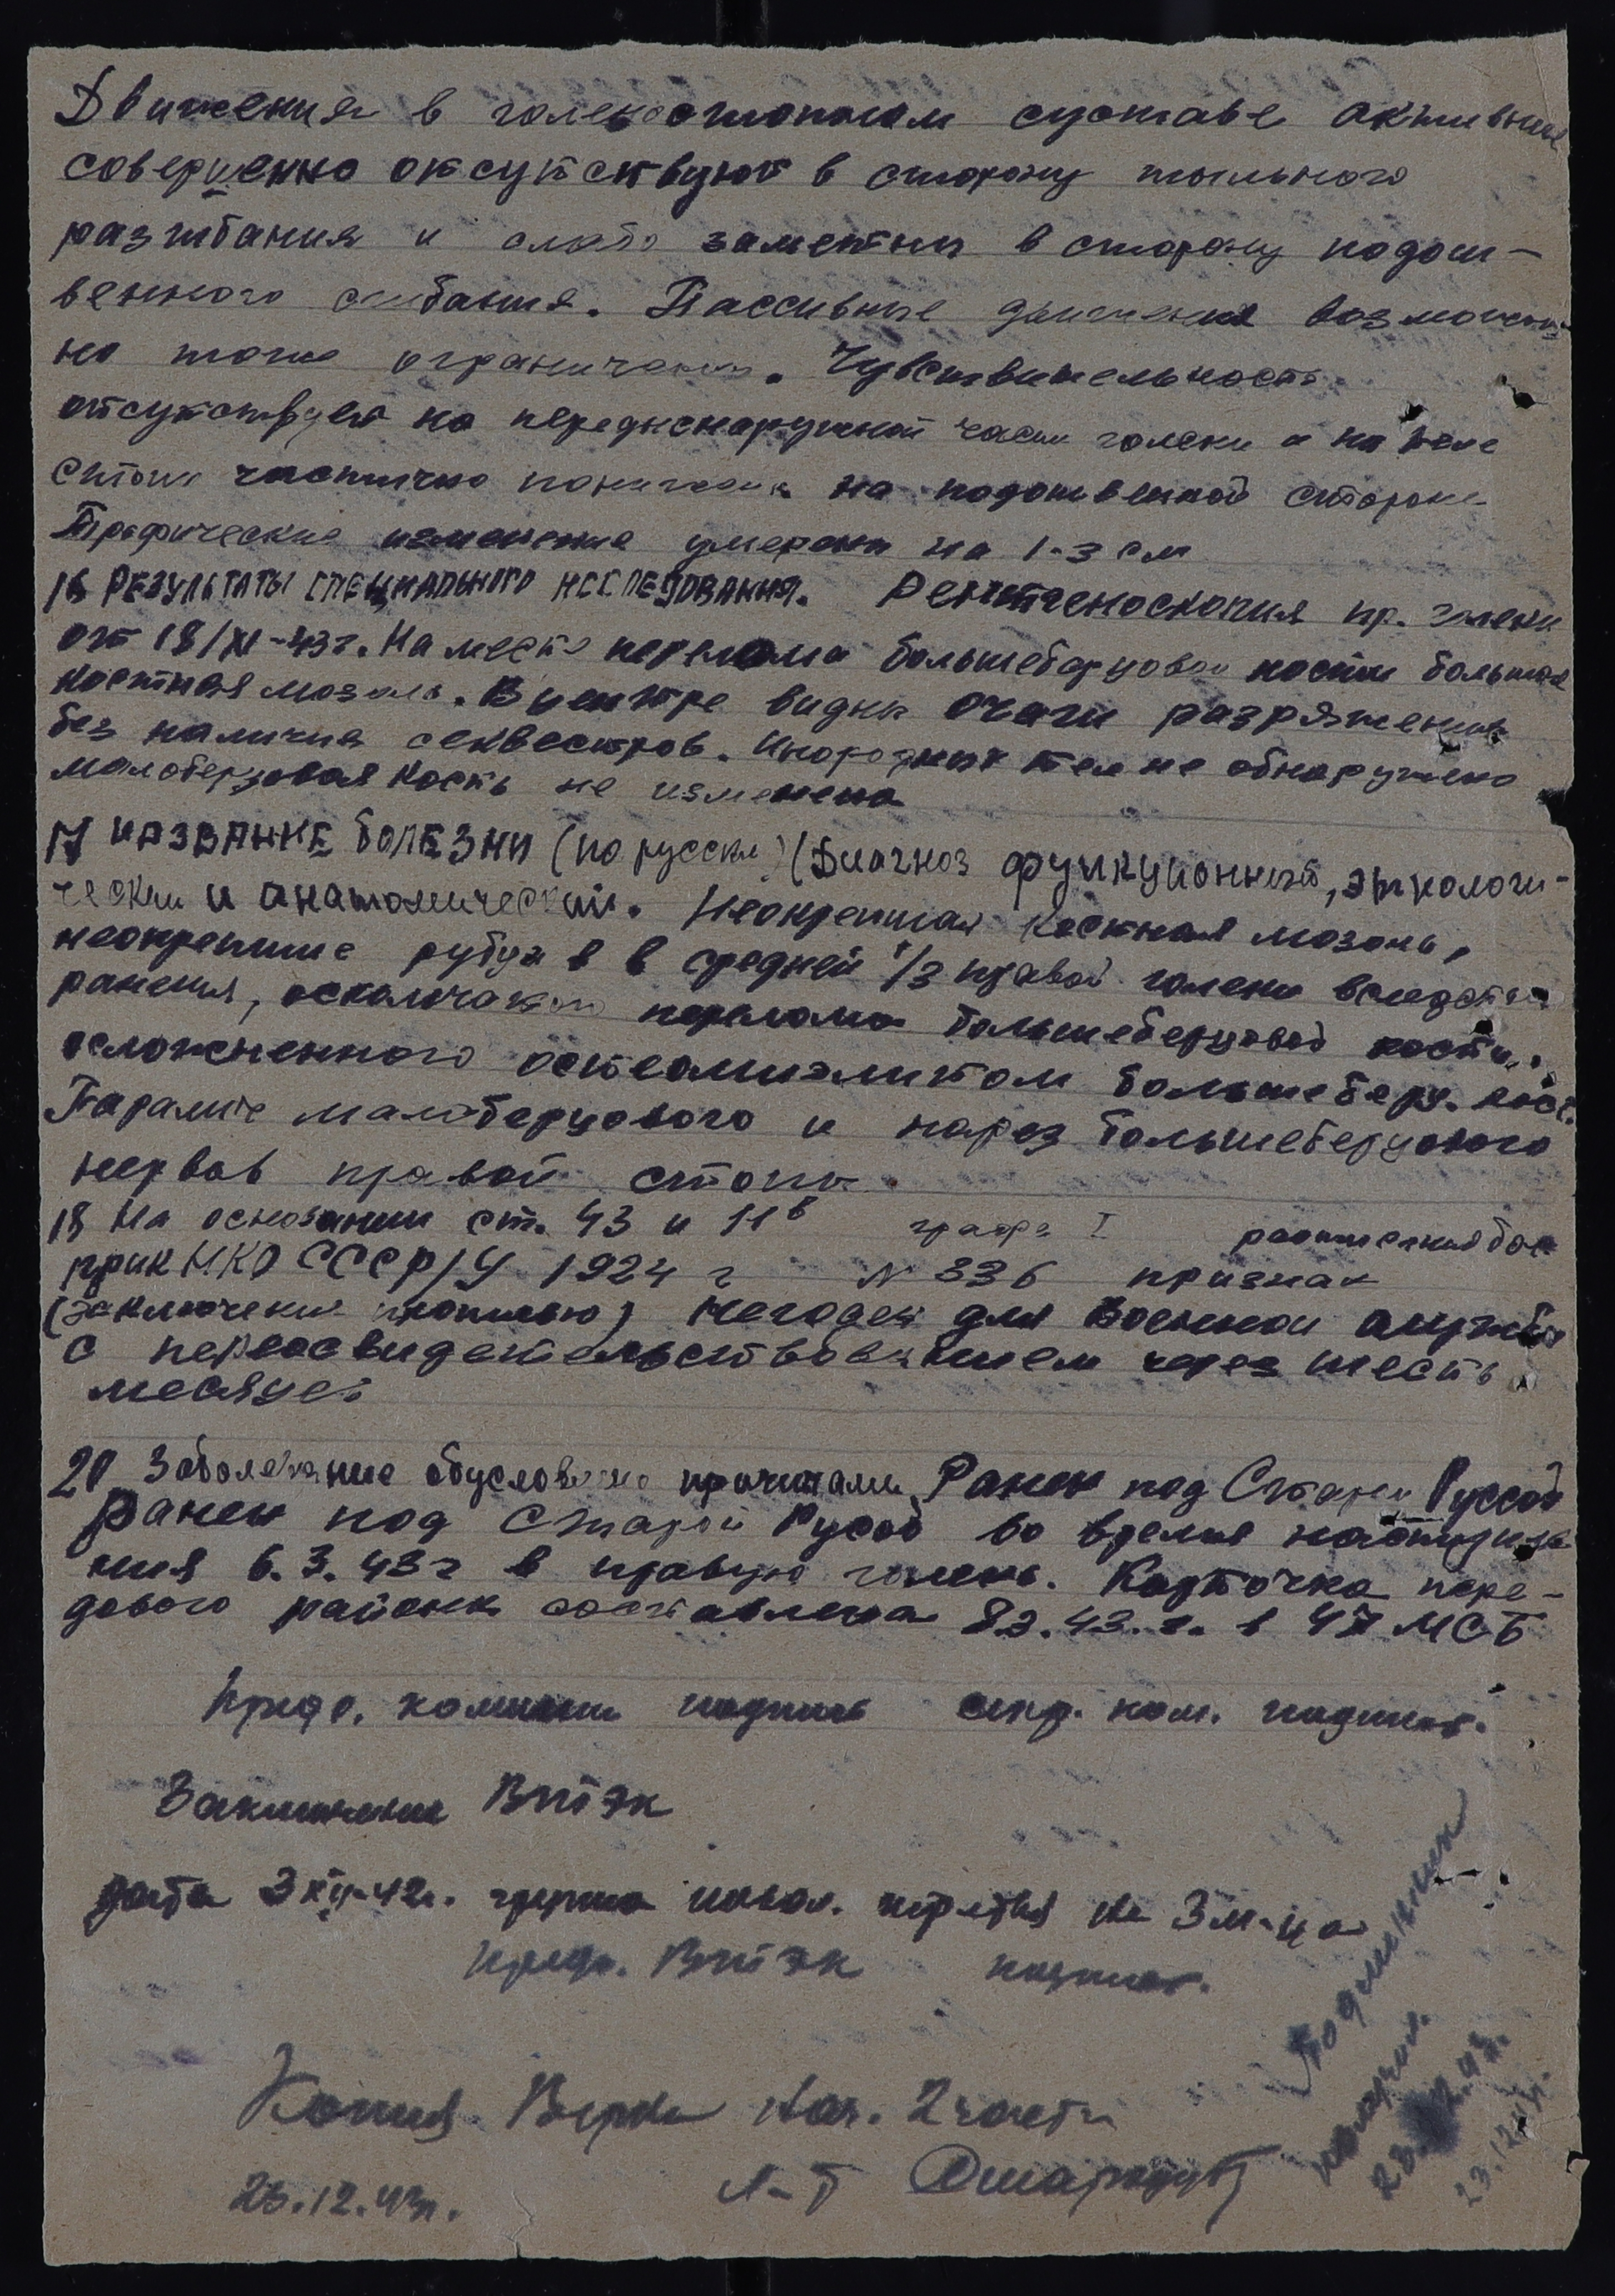 Движения в голеностопном суставе активные
совершенно отсутствуют в сторону тыльного
разгибания и слабо заметны в сторону подош-
венного сгибания. Пассивные движения возможны
но тоже ограничены. Чувствительность
отсутствует на передненаружной части голени и на теле
стопы частично понижена на подошвенной стороне
Трофические изменения умерены на 1-3 см
16 РЕЗУЛЬТАТЫ СПЕЦИАЛЬНОГО ИССЛЕДОВАНИЯ. Рентгеноскопия пр. голени
от 18/XI-43г. На месте перелома большеберцовой кости большая
костная мозоль. В центре видны очаги разряжения
без наличия секвестров. Инородных тел не обнаружено
малоберцовая кость не изменена
17 НАЗВАНИЕ БОЛЕЗНИ (по русски) (Диагноз функционный, этиологи-
ческий и анатомический. Неокрепшая костная мозоль,
неокрепшие рубцы в в средней 1/3 правой голени вследствии
ранения, оскольчатого перелома большеберцовой кости,
осложненного остеомиэлитом большеберц. кос.
Паралич малоберцового и парез большеберцового
нервов правой стопы.
18 На основании ст. 43 и 11в графа I расписания бол
прик НКО СССР/У 1924 г N 336 признан
(заключение полностью) Негоден для военной службы
с переосвидетельствованием через шесть
месяцев
20 Заболевание обусловлено причинами Ранен под Старой Руссой
Ранен под Старой Русой во время наступле
ния 6.3.43г в правую голень. Карточка пере-
дового района составлена 83.43.г. в 47 МСБ
Пред. комиссии подпись секр. ком. подпись.
Заключение ВТЭК
дата 3 XII-42г. группа инвал. третья на 3 м-ца
Пред. ВТЭК подпись.
Копия Верна Нач. 2 части
Л-т
23.12.43г.
Подлинник
получил.
23.12.43г.
23.12.43г.